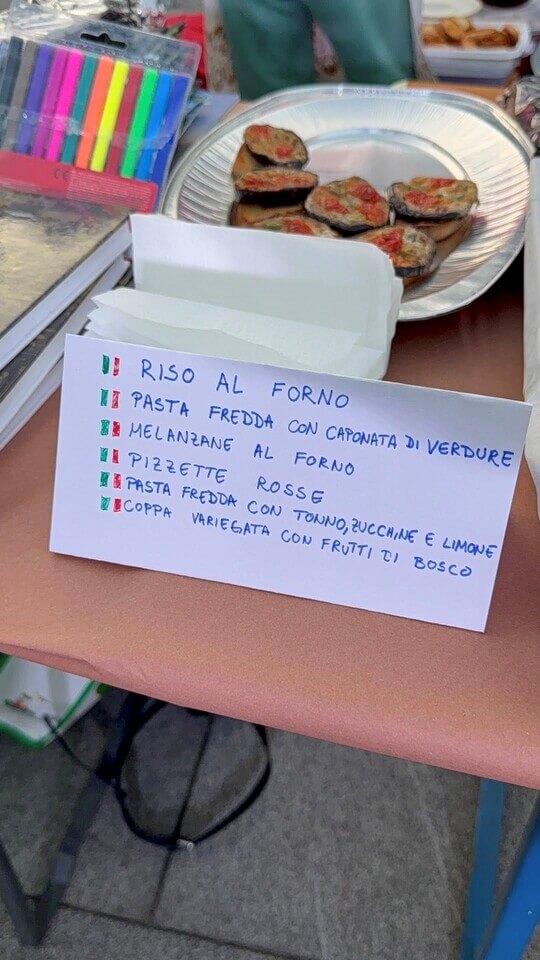 RISO AL FORNO
PASTA FREDDA CON CAPONATA DI VERDURE
MELANZANE AL FORNO
PIZZETTE ROSSE
PASTA FREDDA CON TONNO, ZUCCHINE E LIMONE
COPPA VARIEGATA CON FRUTTI DI BOSCO